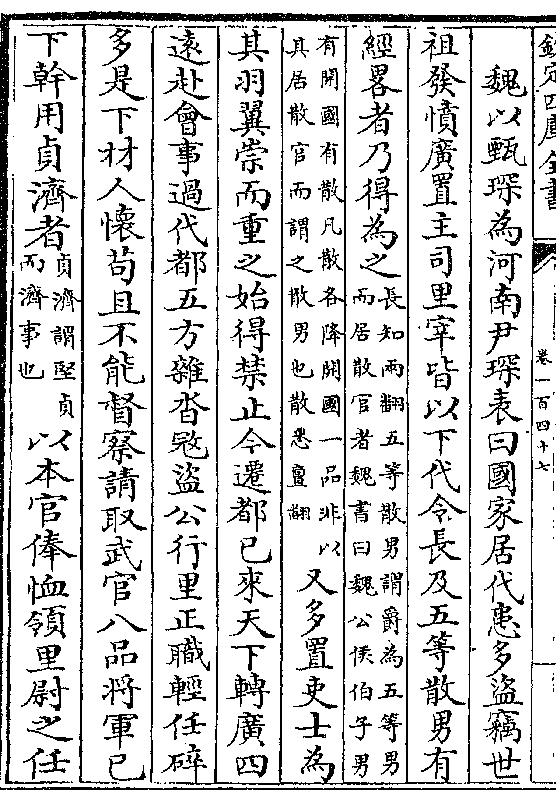 欽定四庫全書
卷一百四十七
魏以甄琛為河南尹琛表曰國家居代患多盜竊世
祖發憤廣置主司里宰皆以下代令長及五等散男有
經畧者乃得為之
長知兩翻五等散男謂爵為五等男
而居散官者魏書曰魏公侯伯子男
有開國有散凡散各降開國一品非以
其居散官而謂之散男也散悉亶翻
又多置吏士為
其羽翼崇而重之始得禁止今遷都已來天下轉廣四
遠赴會事過代都五方雜沓㓂盜公行里正職輕任碎
多是下材人懷苟且不能督察請取武官八品將軍已
下幹用貞濟者
貞濟謂堅貞
而濟事也
以本官俸恤領里尉之任